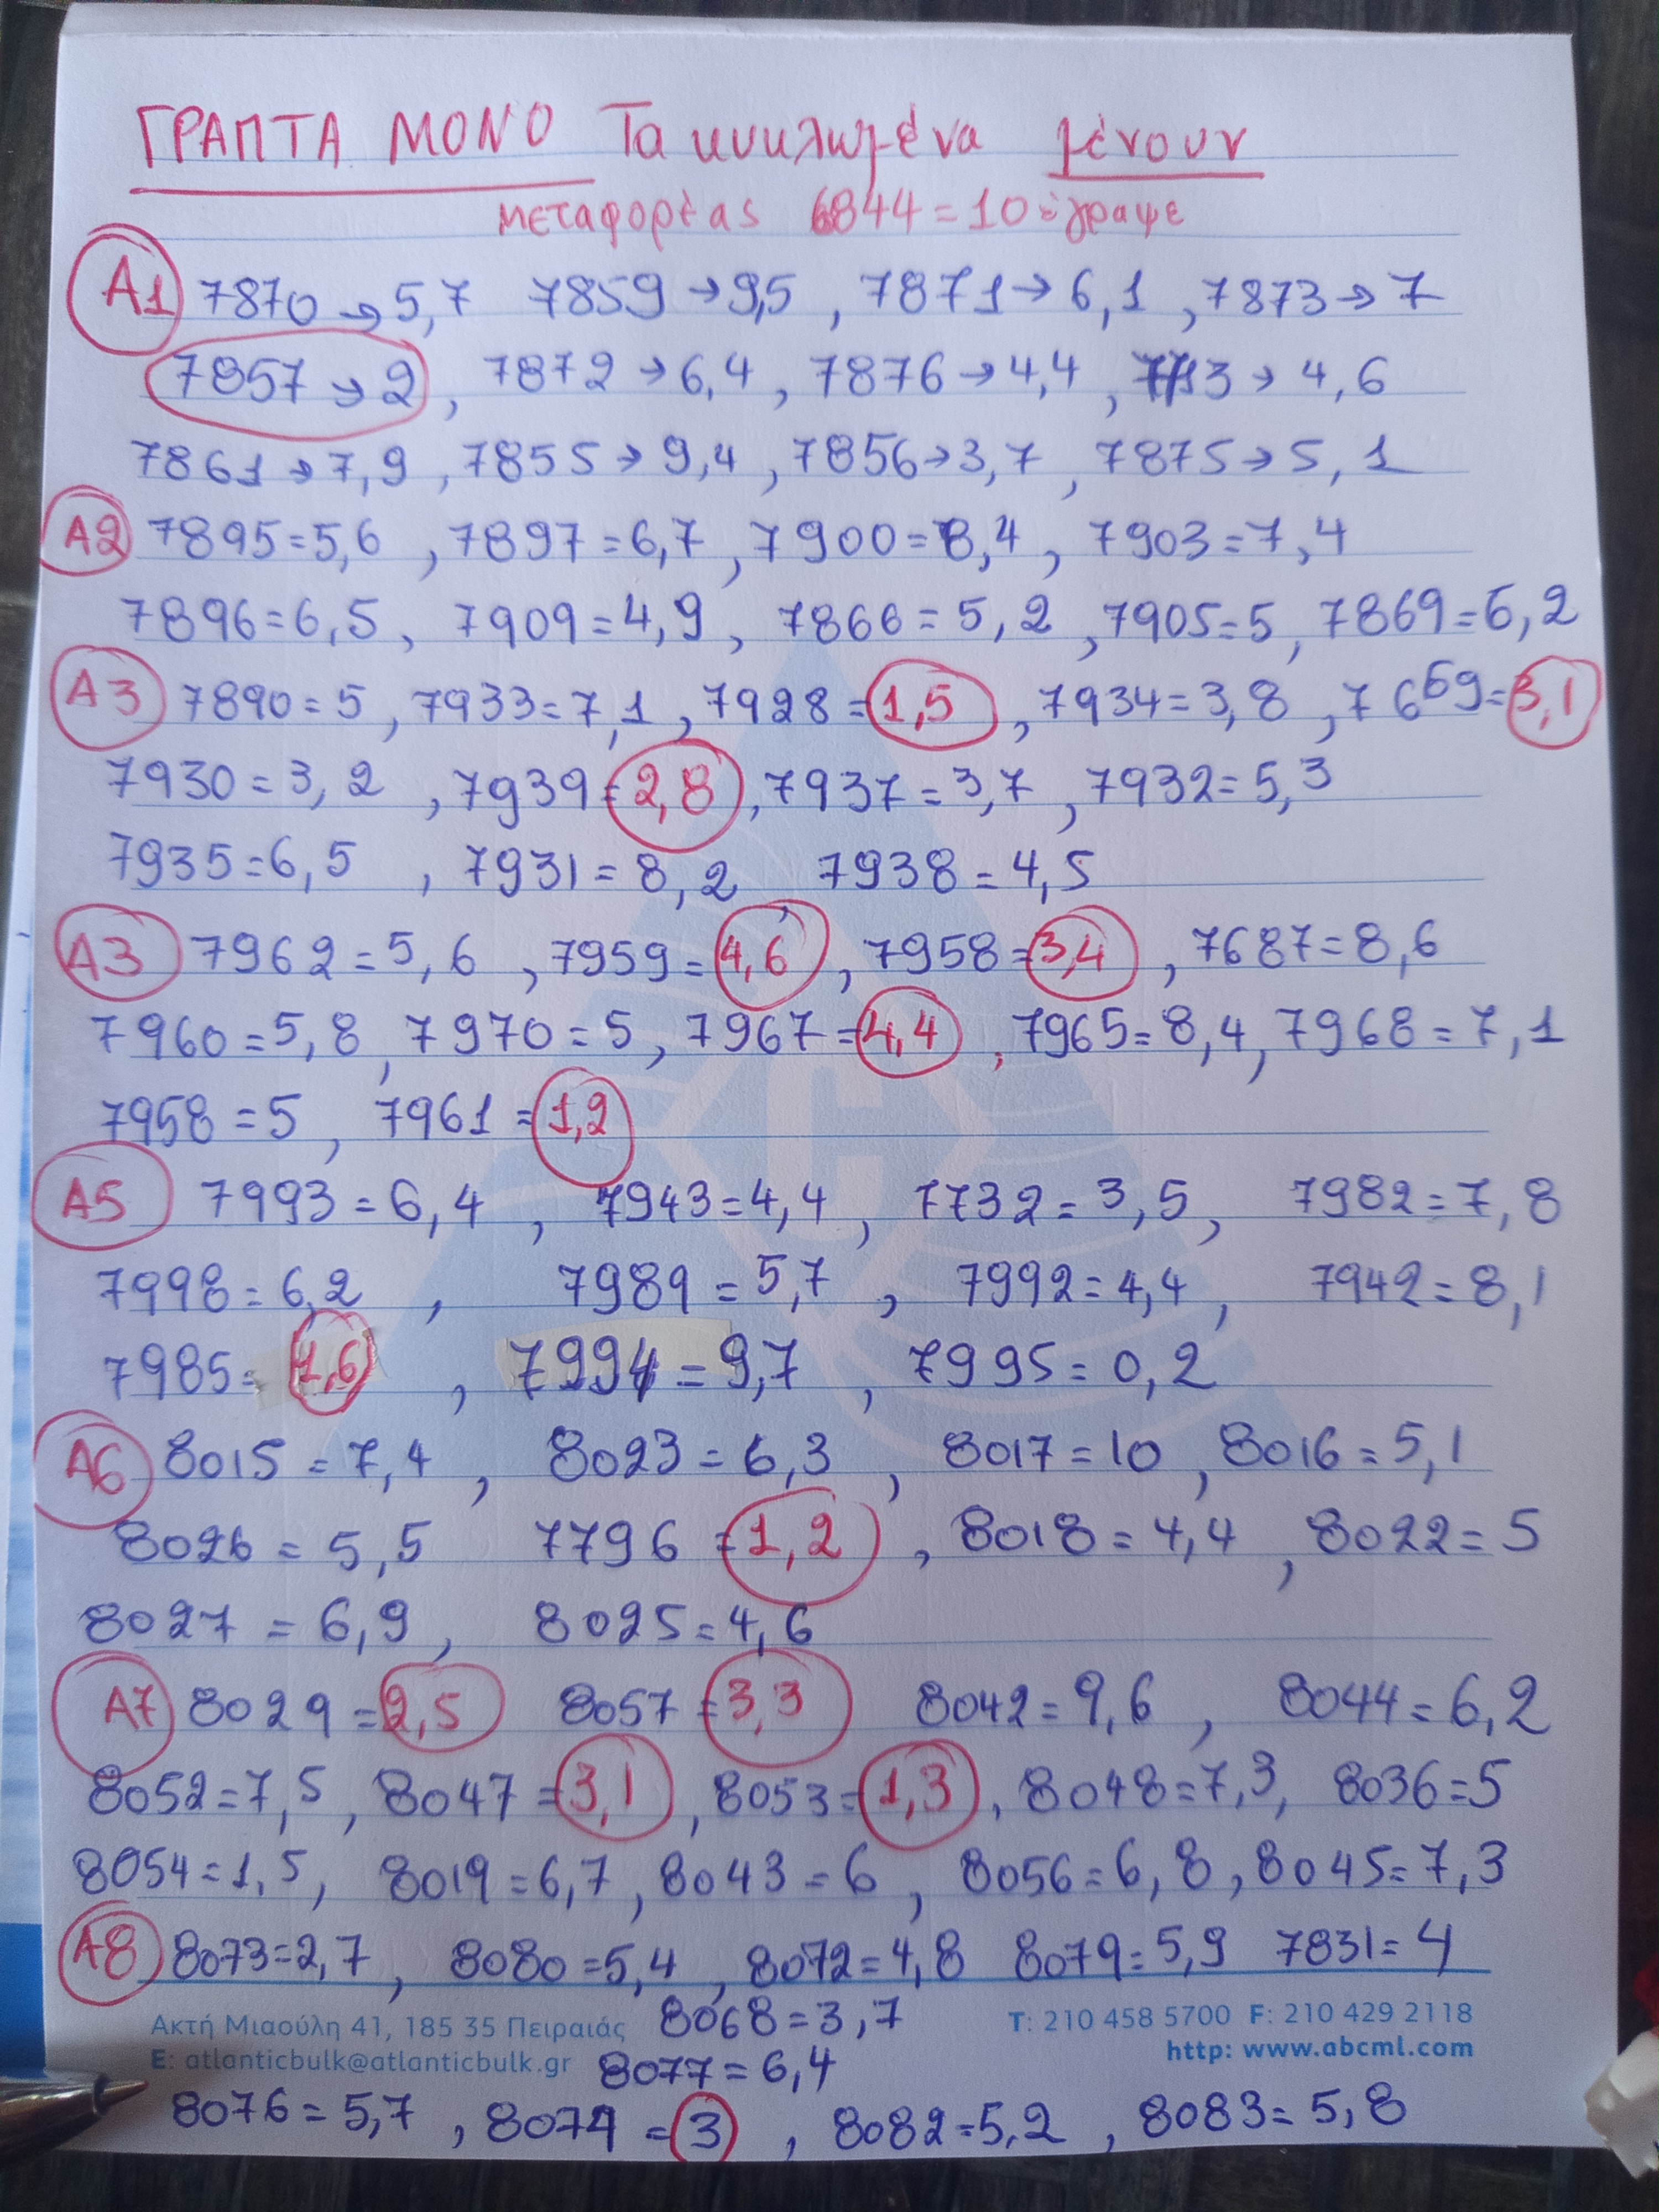 ΓΡΑΠΤΑ ΜΟΝΟ Τα κυκλωμένα μένουν
μεταφορέας 6844=10 έγραψε
A1 7870→5,7 7859→9,5, 7871→6,1, 7873→7
7857→2, 7872→6,4, 7876→4,4, →4,6
7861→7,9, 7855→9,4, 7856→3,7, 7875→5,1
A2 7895=5,6, 7897=6,7, 7900=8,4, 7903=7,4
7896=6,5, 7909=4,9, 7866=5,2, 7905=5, 7869=6,2
A3 7890=5, 7933=7,1, 7928=1,5, 7934=3,8, 7669=3,1
7930=3,2, 7939=2,8, 7937=3,7, 7932=5,3
7935=6,5, 7931=8,2, 7938=4,5
A3 7962=5,6, 7959=4,6, 7958=3,4, 7687=8,6
7960=5,8, 7970=5, 7967=4,4, 7965=8,4, 7968=7,1
7958=5, 7961=1,2
A5 7993=6,4, 7943=4,4, 7732=3,5, 7982=7,8
7998=6,2, 7989=5,7, 7992=4,4, 7942=8,1
7985=1,6, 7994=9,7, 7995=0,2
A6 8015=7,4, 8023=6,3, 8017=10, 8016=5,1
8026=5,5 7796=1,2, 8018=4,4, 8022=5
8027=6,9, 8025=4,6
A7 8029=2,5 8057=3,3 8042=9,6, 8044=6,2
8052=7,5, 8047=3,1, 8053=1,3, 8048=7,3, 8036=5
8054=1,5, 8019=6,7, 8043=6, 8056=6,8, 8045=7,3
A8 8073=2,7, 8080=5,4, 8072=4,8 8079=5,9 7831=4
Ακτή Μιαούλη 41, 185 35 Πειραιάς 8068=3,7 T: 210 458 5700 F: 210 429 2118
E: atlanticbulk@atlanticbulk.gr 8077=6,4 http: www.abcml.com
8076=5,7, 8074=3, 8082=5,2, 8083=5,8